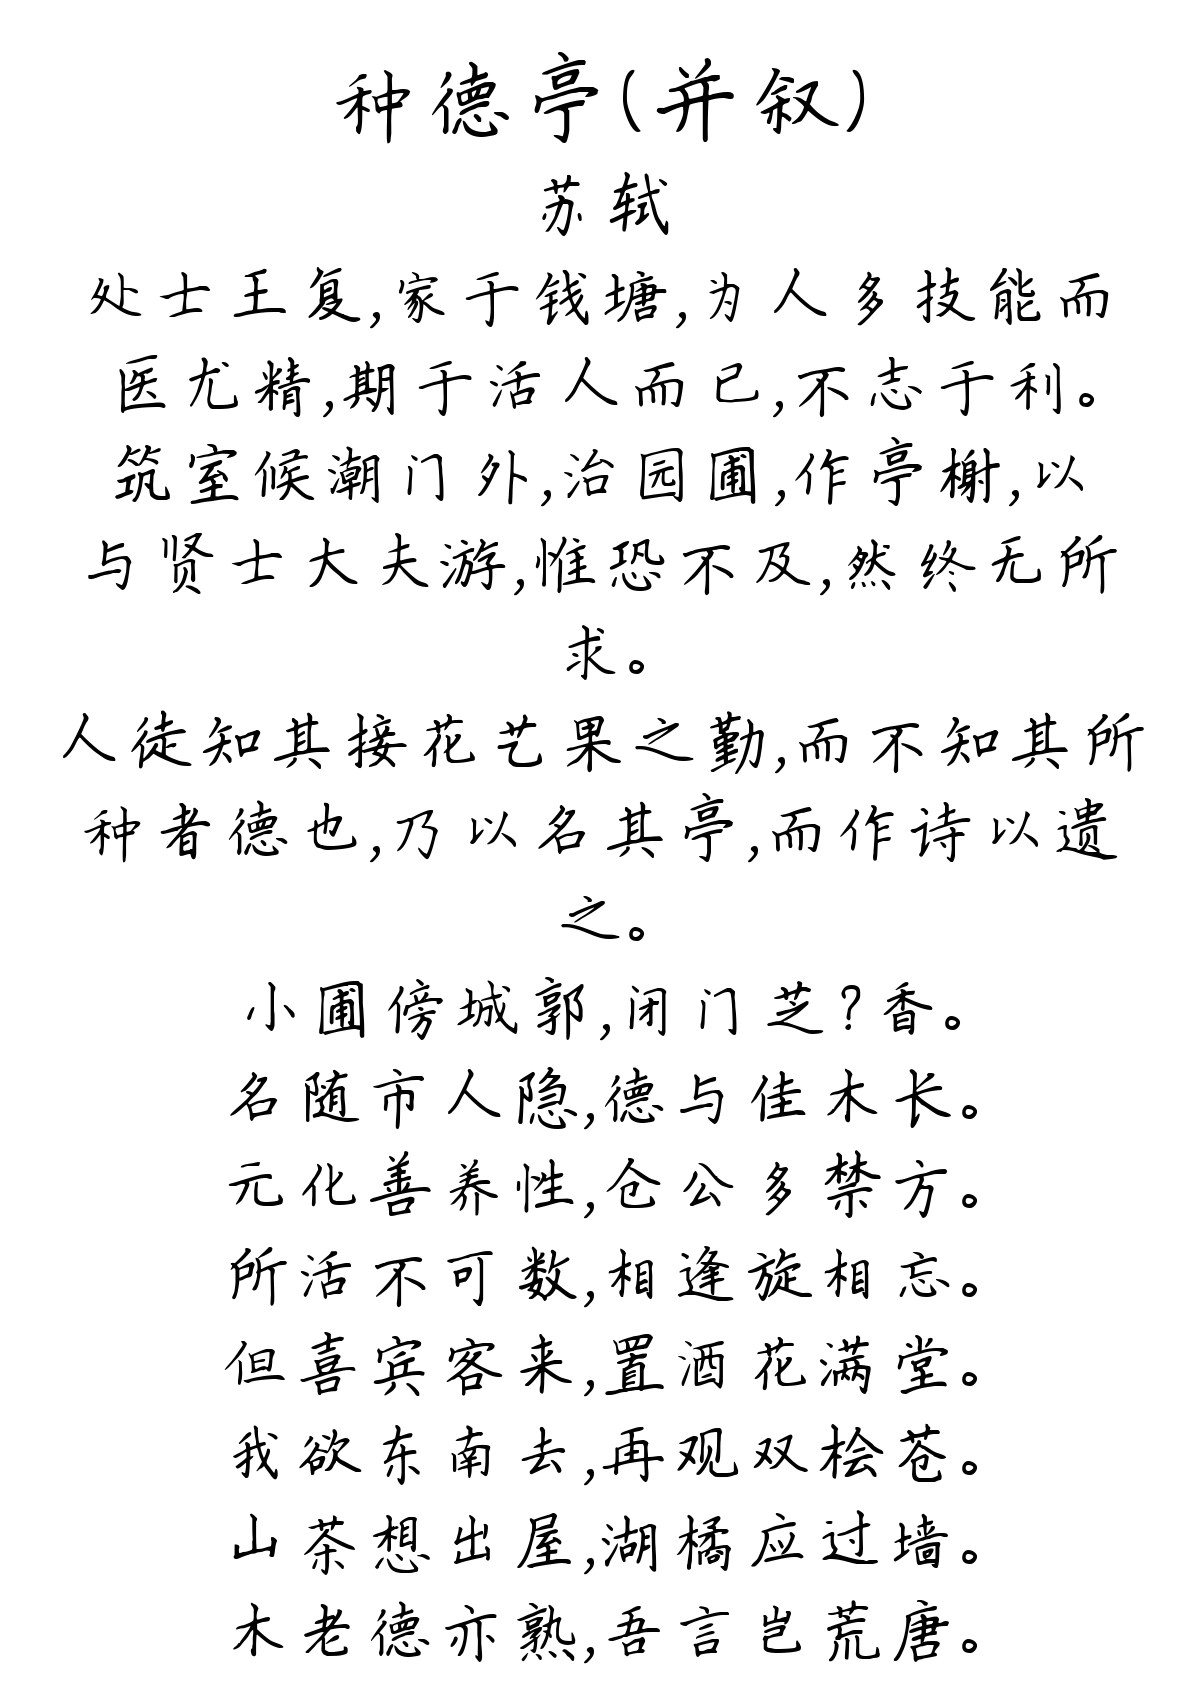 种德亭(并叙)
苏轼
处士王复,家于钱塘,为人多技能而
医尤精,期于活人而已,不志于利。
筑室候潮门外,治园圃,作亭榭,以
与贤士大夫游,惟恐不及,然终无所
求。
人徒知其接花艺果之勤,而不知其所
种者德也,乃以名其亭,而作诗以遗
之。
小圃傍城郭,闭门芝?香。
名随市人隐,德与佳木长。
元化善养性,仓公多禁方。
所活不可数,相逢旋相忘。
但喜宾客来,置酒花满堂。
我欲东南去,再观双桧苍。
山茶想出屋,湖橘应过墙。
木老德亦熟,吾言岂荒唐。